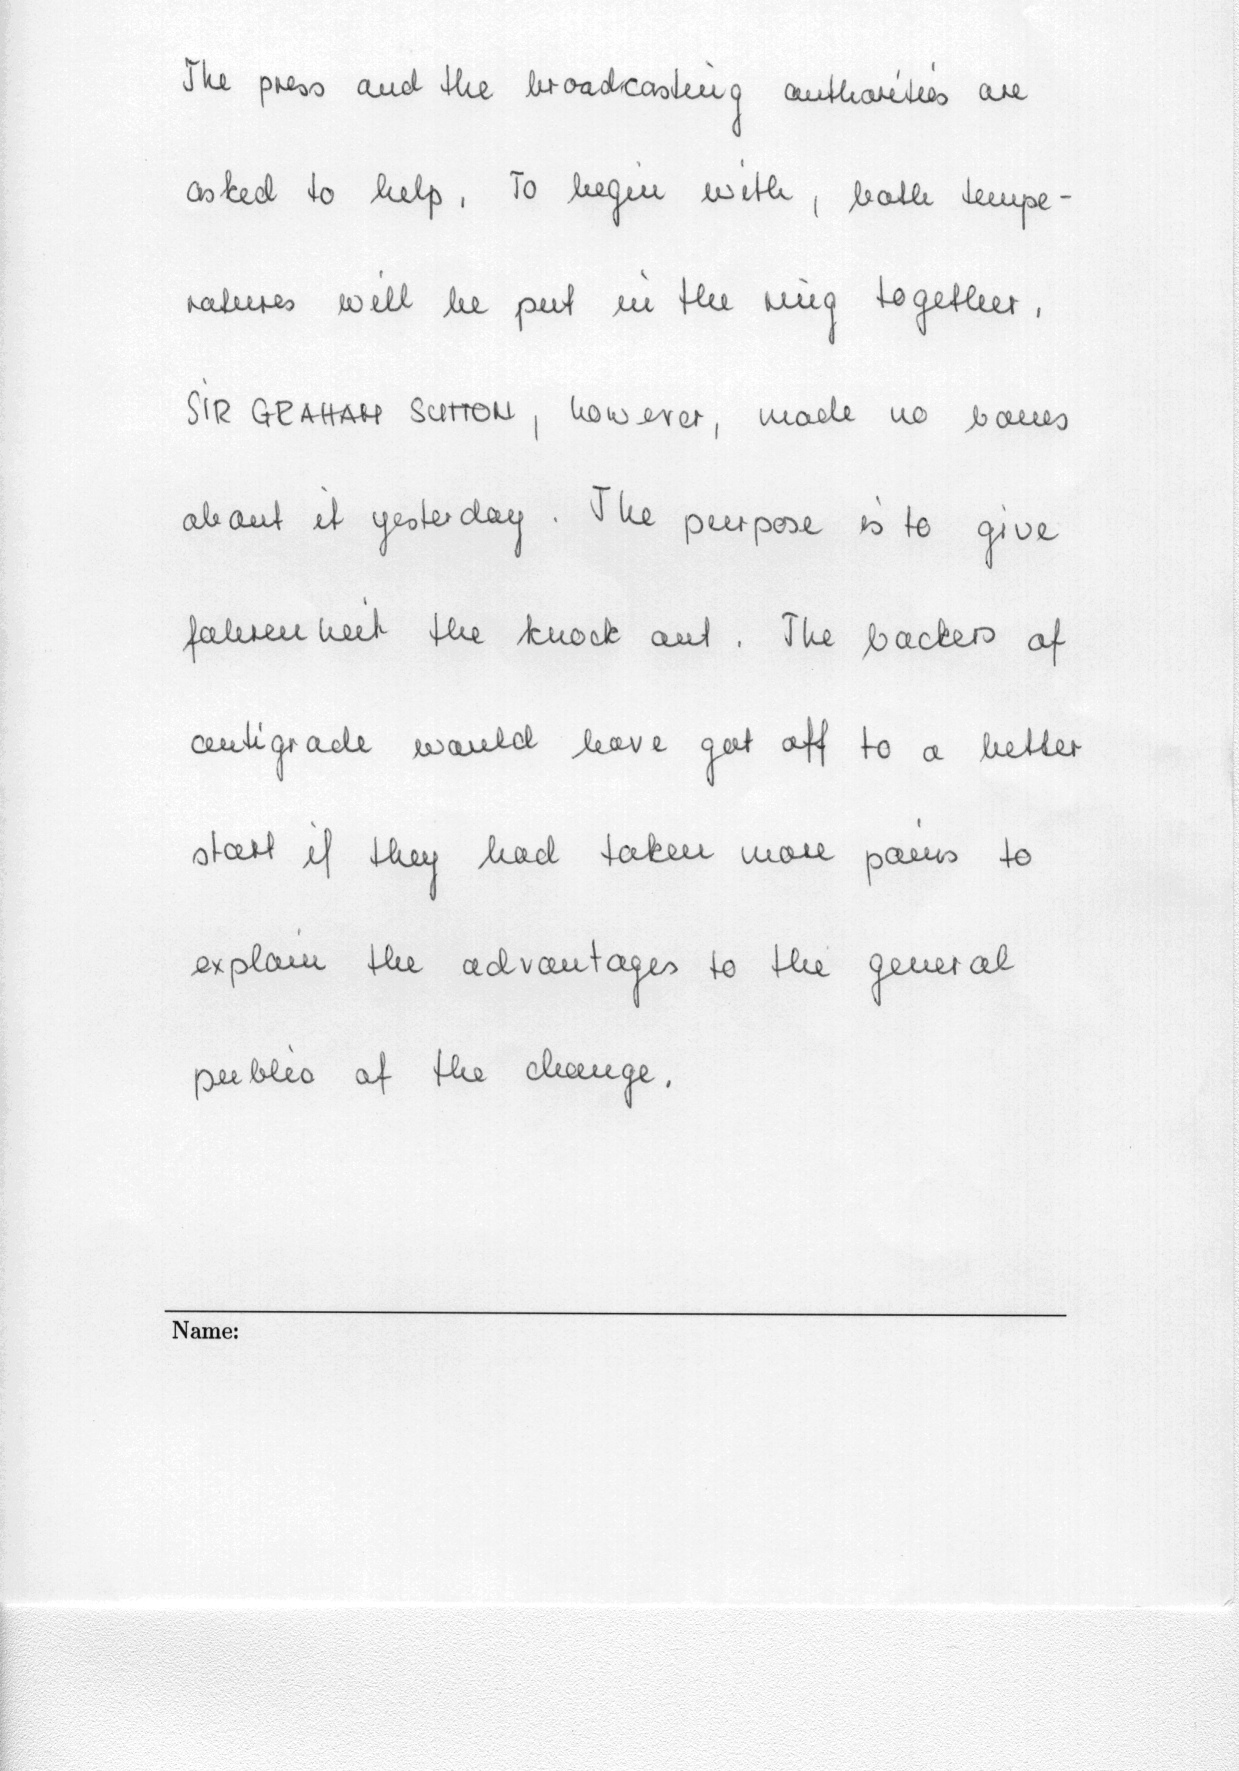 The press and the broadcasting authorities are
asked to help. To begin with, both tempe-
ratures will be put in the ring together.
SIR GRAHAM SUTTON, however, made no bones
about it yesterday. The purpose is to give
fahrenheit the knock out. The backers of
centigrade would have got off to a better
start if they had taken more pains to
explain the advantages to the general
public of the change.
Name: